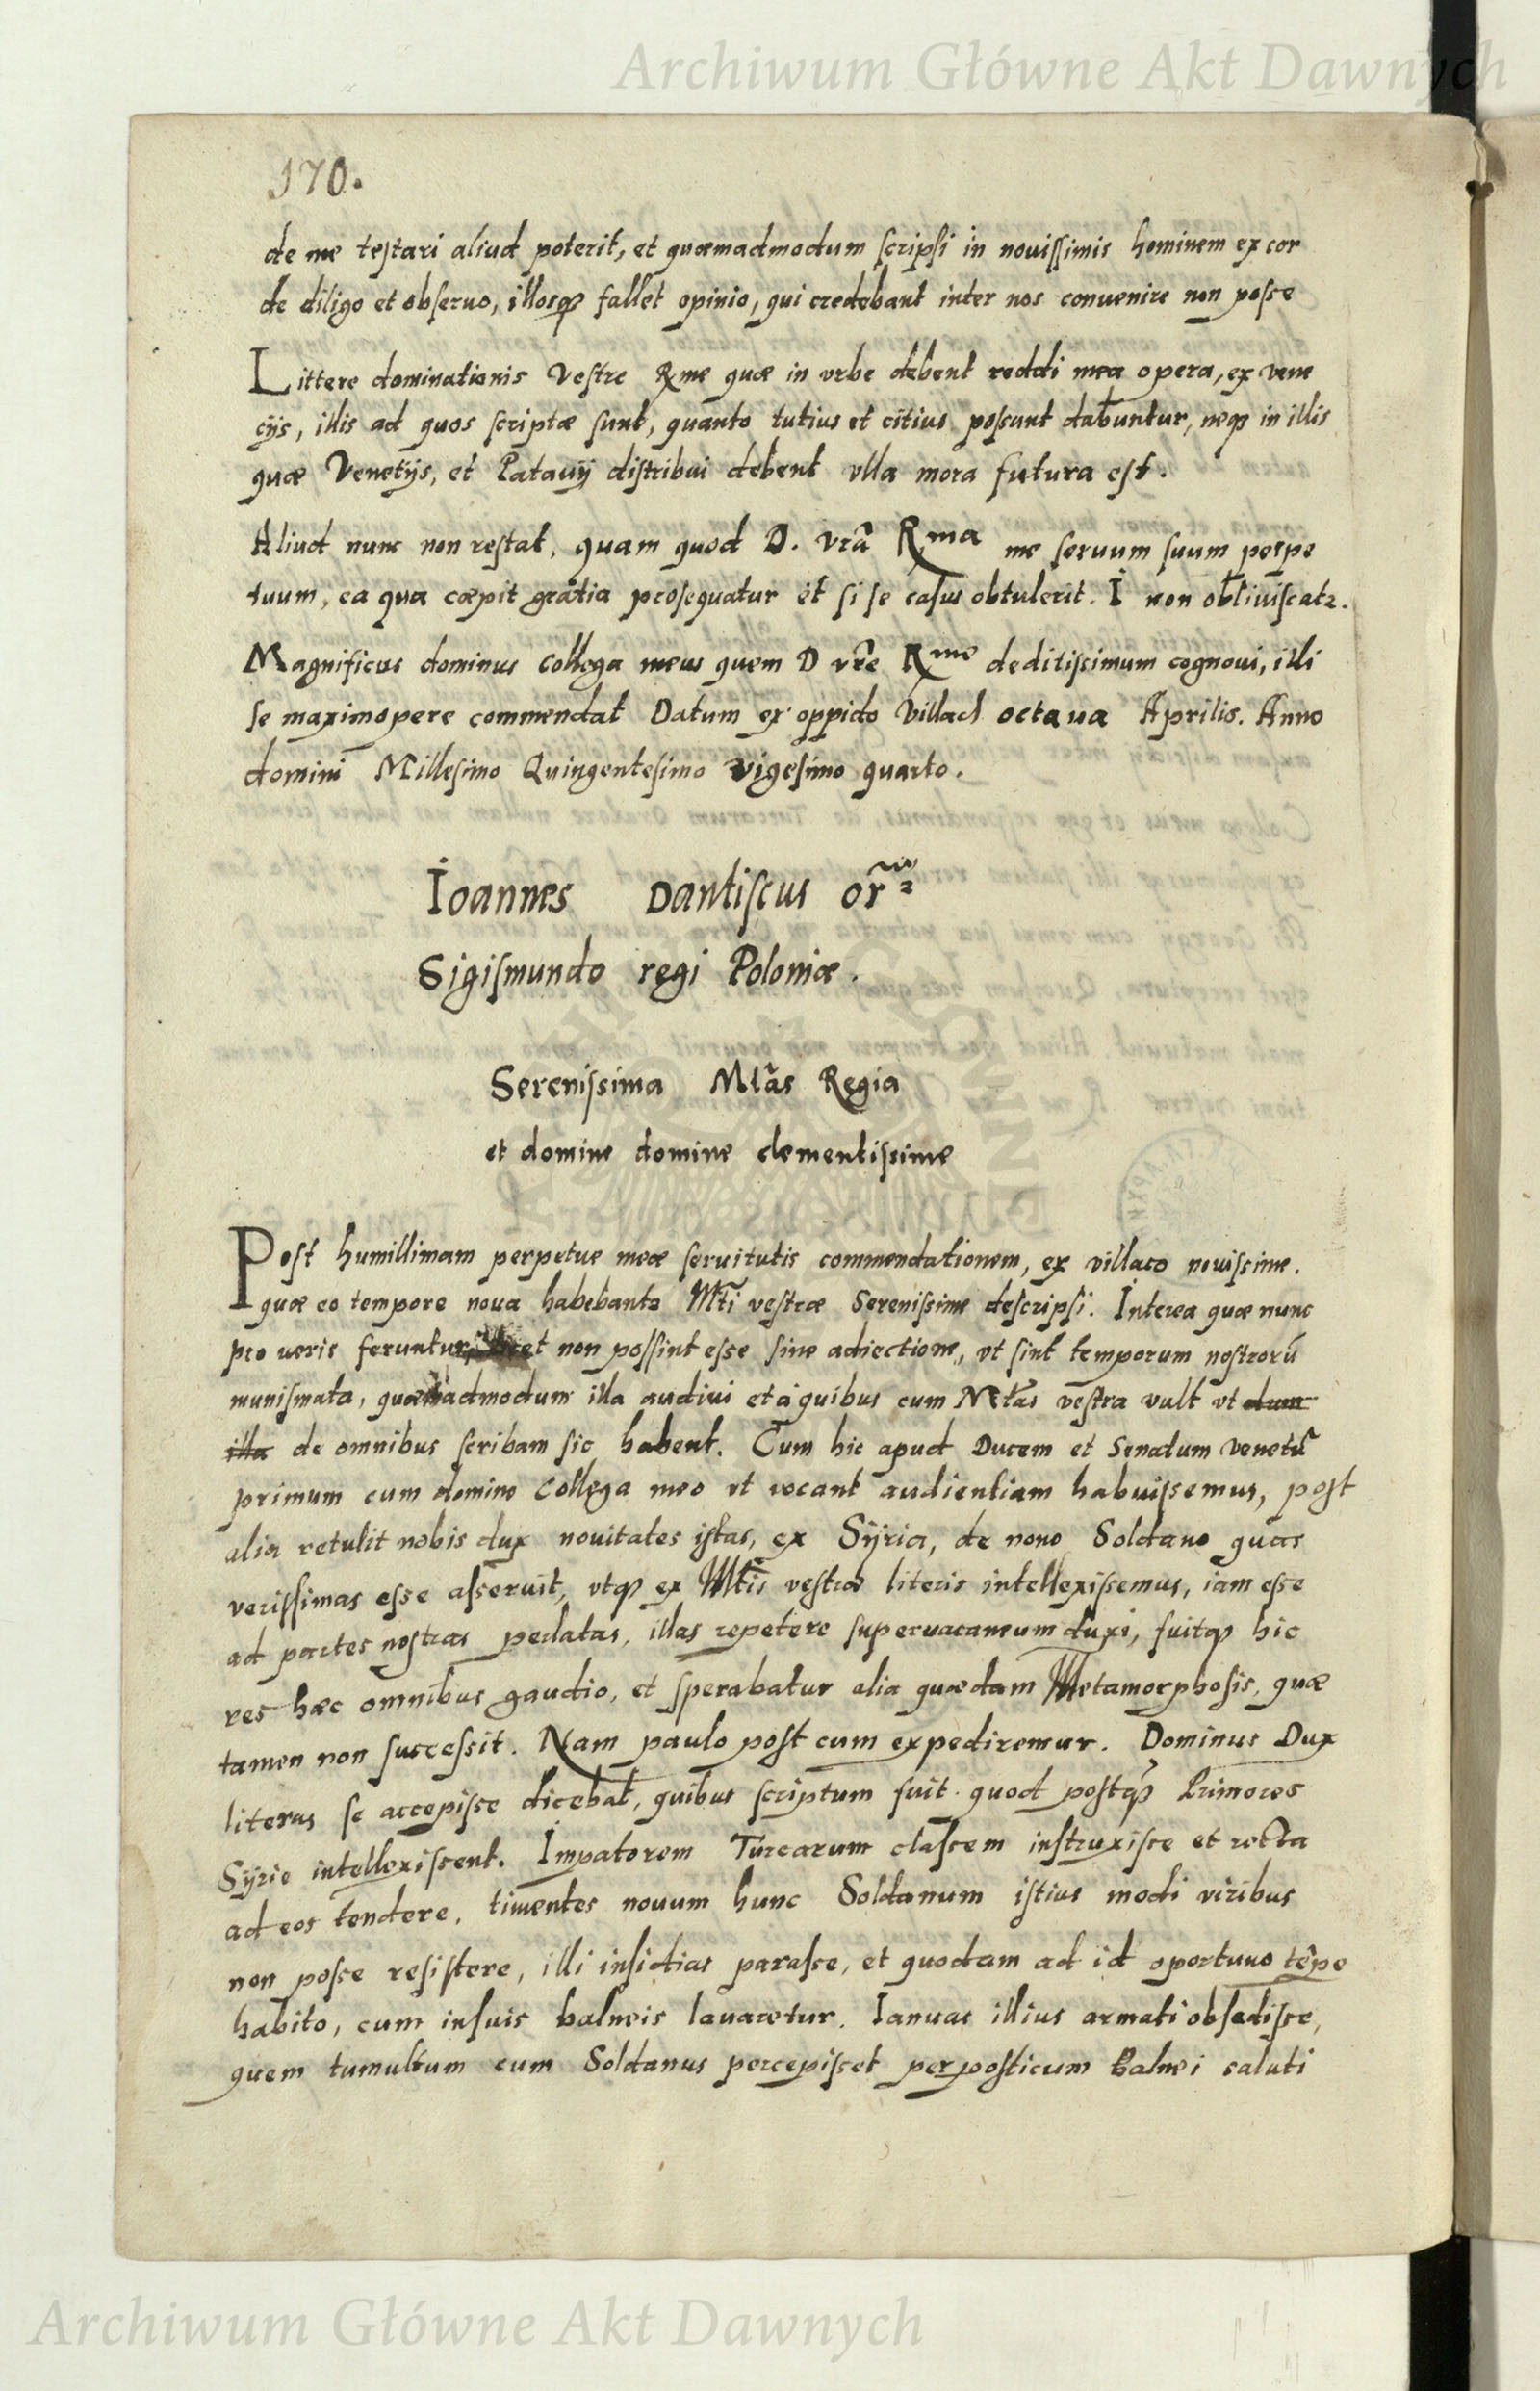 Archiwum Główne Akt Dawnych
170.
de me testari aliud poterit, et quæmadmodum scripsi in nouissimis hominem ex cor
de diligo et obseruo, illosq3 fallet opinio, qui credebant inter nos conuenire non posse
Littere dominationis Vestre Rme quæ in vrbe debent reddi mea opera, ex Vene
cijs, illis ad quos scriptæ sunt, quanto tutius et citius possunt dabuntur, neq3 in illis
quæ Venetijs, et Patauij distribui debent vlla mora futura est.
Aliud nunc non restat, quam quod D. vrã Rma me seruum suum perpe
tuum, ea qua cœpit gratia prosequatur et si se casus obtulerit. I non obliuiscat2.
Magnificus dominus collega meus quem D vrẽ Rme deditissimum cognoui, illi
se maximopere commendat Datum ex oppido Villach octaua Aprilis. Anno
domini Millesimo Quingentesimo vigesimo quarto.
Ioannes Dantiscus or̃
Sigismundo regi Poloniæ.
Serenissima Mtãs Regia
et domine domine clementissime
Post humillimam perpetue meæ seruitutis commendationem, ex villaco nouissime.
quæ eo tempore noua habebant2 Mti vestræ Serenissime descripsi. Interea quæ nunc
pro ueris feruntur, licet non possint esse sine adiectione, vt sint temporum nostrorũ
munismata, quæmadmodum illa audiui et a quibus cum Mtãs vestra vult vt dum
illa de omnibus scribam sic habent. Cum hic apud Ducem et Senatum venetũ
primum cum domino collega meo vt vocant audientiam habuissemus, post
alia retulit nobis dux nouitates istas, ex Sÿria, de nono Soldano quas
verissimas esse asseruit, vtq3 ex Mtis vestræ literis intellexissemus, iam esse
ad partes nostras perlatas, illas repetere superuacaneum duxi, fuitq3 hic
res hæc omnibus gaudio, et sperabatur alia quædam Metamorphosis, quæ
tamen non successit. Nam paulo post cum expediremur. Dominus Dux
literas se accepisse dicebat, quibus scriptum fuit quod postq̃3 Primores
Sÿrie intellexissent. Impatorem Turcarum classem instruxisse et recta
ad eos tendere, timentes nouum hunc Soldanum istius modi viribus
non posse resistere, illi insidias parasse, et quodam ad id oportuno tẽpe
habito, cum in suis balneis lauaretur. Ianuas illius armati obsedisse,
quem tumultum cum Soldanus percepisset per posticum Balnei saluti
Archiwum Główne Akt Dawnych